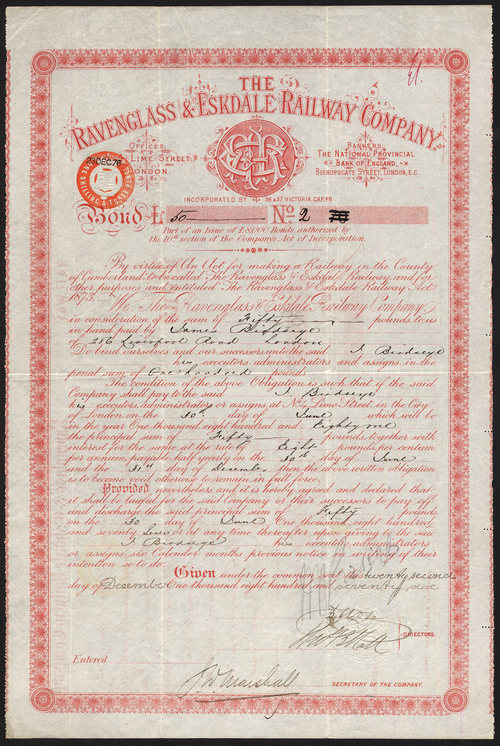 THE
RAVENGLASS & ESKDALE RAILWAY COMPANY.
OFFICES,
LIME STREET,
LONDON
BANKERS,
THE NATIONAL PROVINCIAL
BANK OF ENGLAND,
BISHOPSGATE STREET, LONDON, E.C.
29 DEC 76
INCORPORATED BY 36 & 37 VICTORIA, CAP.
Bond £ 50 No 2
Part of an Issue of £8,000 Bonds authorized by
the 10th section of the Company's Act of Incorporation.
By virtue of An Act for making a Railway in the County
of Cumberland to be called The Ravenglass & Eskdale Railway, and for
other purposes and intituled The Ravenglass & Eskdale Railway Act
1873. We The Ravenglass & Eskdale Railway Company,
in consideration of the sum of Fifty pounds to us
in hand paid by James Birdseye
of 256 Liverpool Road London
Do bind ourselves and our successors unto the said J. Birdseye
his executors administrators and assigns, in the
penal sum of One hundred pounds
The condition of the above Obligation is such that if the said
Company shall pay to the said J. Birdseye
his executors, administrators or assigns, at No 4, Lime Street, in the City
of London, on the 30th day of June which will be
in the year One thousand eight hundred and Eighty one
the principal sum of Fifty pounds, together with
interest for the same at the rate of Eight pounds per centum
per annum, payable half yearly on the 30th day of June
and the 31st day of Desember then the above written obligation
is to become void otherwise to remain in full force.
Provided nevertheless and it is hereby agreed and declared that
it shall be lawful for the said Company or their successors to pay off
and discharge the said principal sum of Fifty pounds
on the 30 day of June One thousand eight hundred
and seventy or at any time thereafter upon giving to the said
J. Birdseye his executors administrators
or assigns, six Calendar months previous notice in writing of their
intention so to do.
Given under the common seal this twenty second
day of Desember One thousand eight hundred and seventy six
DIRECTORS.
Entered
J W Marshall
SECRETARY OF THE COMPANY.